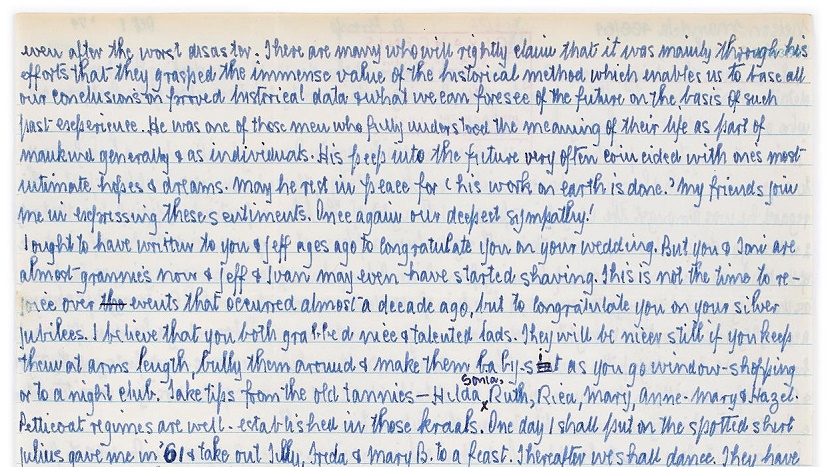 even after the worst disaster. There are many who will rightly claim that it was mainly through his
efforts that they grasped the immense value of the historical method which enables us to base all
our conclusions on proved historical data & what we can foresee of the future on the basis of such
past experience. He was one of those men who fully understood the meaning of their life as part of
mankind generally & as individuals. His peep into the future very often coincided with ones most
intimate hopes & dreams. May he rest in peace for 'his work on earth is done.' My friends join
me in expressing these sentiments. Once again our deepest sympathy!
I ought to have written to you & Jeff ages ago to congratulate you on your wedding. But you & Toni are
almost grannies now & Jeff & Ivan may even have started shaving. This is not the time to re-
joice over the events that occurred almost a decade ago, but to congratulate you on your silver
jubilees. I believe that you both grabbed nice & talented lads. They will be nicer still if you keep
them at arms length, bully them around & make them baby-sit as you go window-shopping
or to a night club. Take tips from the old tannies – Hilda, Sonia, Ruth, Rica, Mary, Anne-Mary & Hazel.
Petticoat regimes are well-established in those kraals. One day I shall put on the spotted shirt
Julius gave me in '61 & take out Tilly, Freda & Mary B. to a feast. Thereafter we shall dance. They have